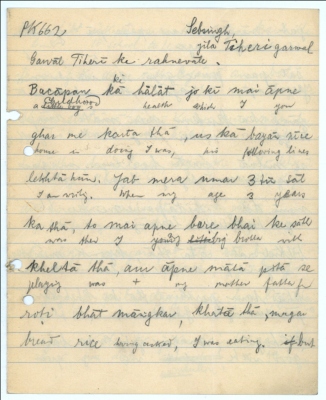 PK662
Sebsingh,
zila Tiheri garwal
Garwāl Tiherī ke rahnevāle.
kī
Bacāpan kā hālāt jo kī mai apne
childhood
a health which I your
ghar me karta thā, us kā bayān nīce
home in doing I was, his following lines
lekhtā hūn. Jab mera umar 3 tīn sāl
I am writg. when my age 3 years
ka thā, to mai apne bare bhai ke sāth
was then I big brother with
kheltā thā, aur āpne mātā pitā se
playing was + my mother father fr
roṭi bhāt māngkar, khātā thā, magar
bread rice being asked, I was eating. but